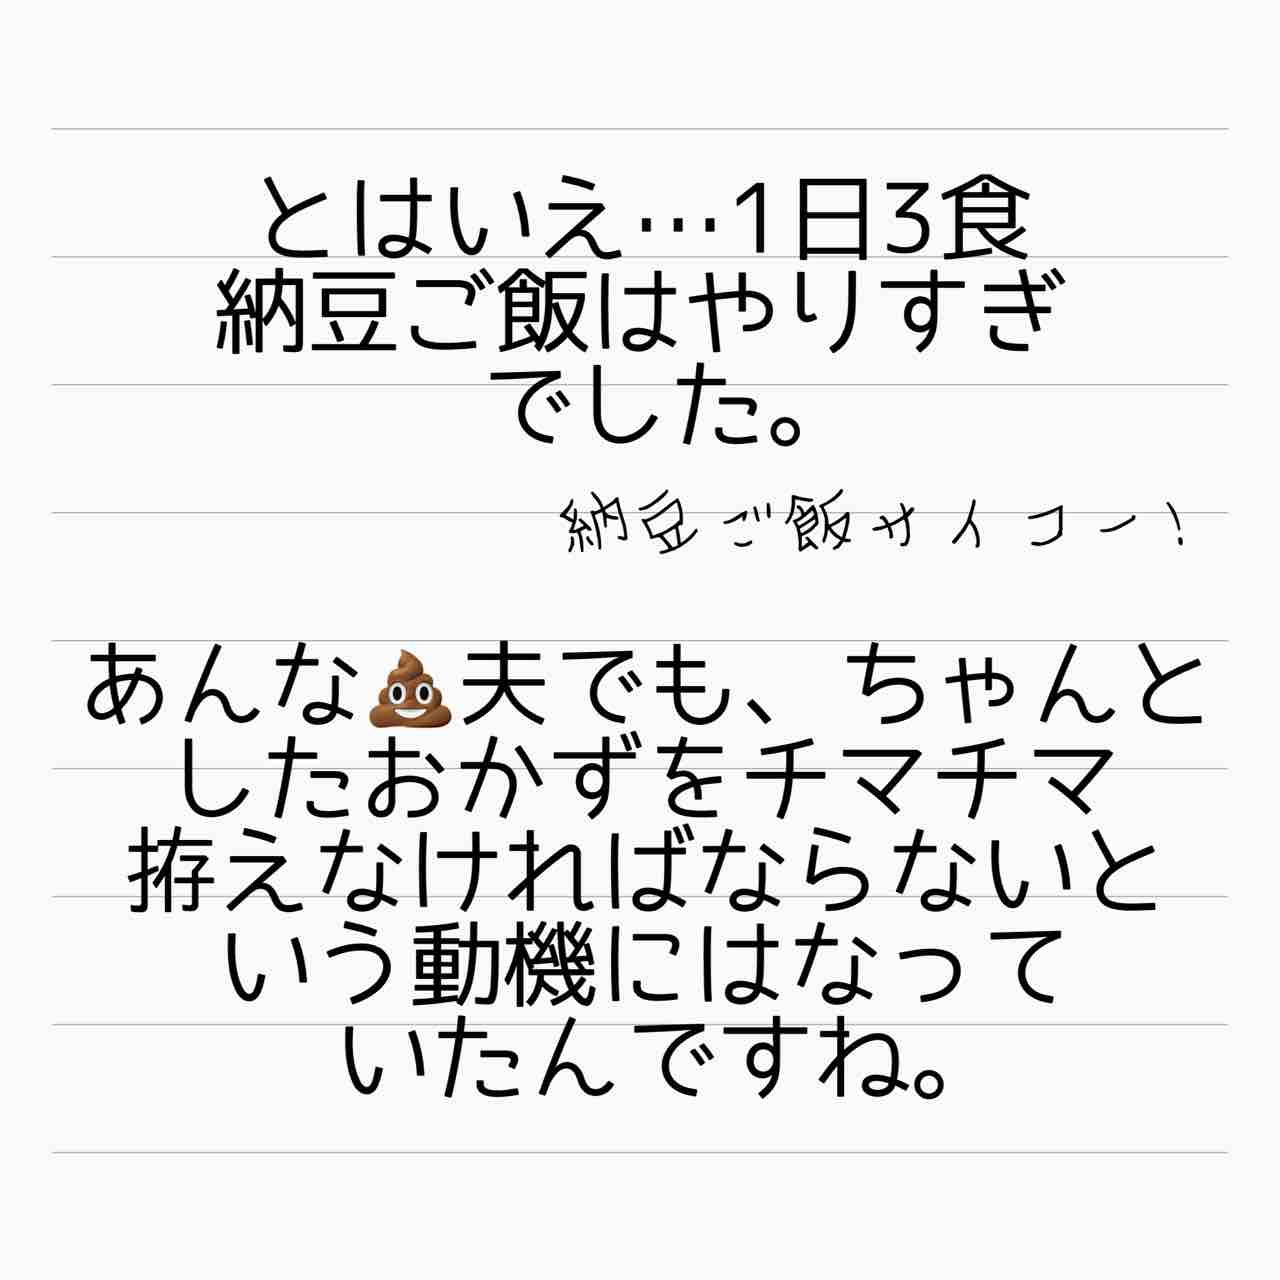 とはいえ…1日3食
納豆ご飯はやりすぎ
でした。
納豆ご飯サイコー!
あんな💩夫でも、ちゃんと
したおかずをチマチマ
拵えなければならないと
いう動機にはなって
いたんですね。